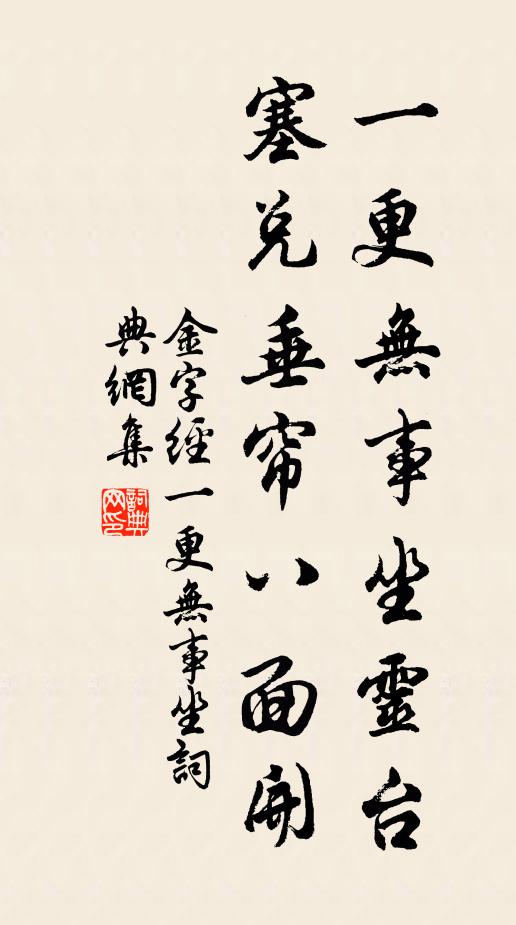 一更無事坐靈台
塞兌垂帘八面開
金字經一更無事坐詞
典網集
詞典网印